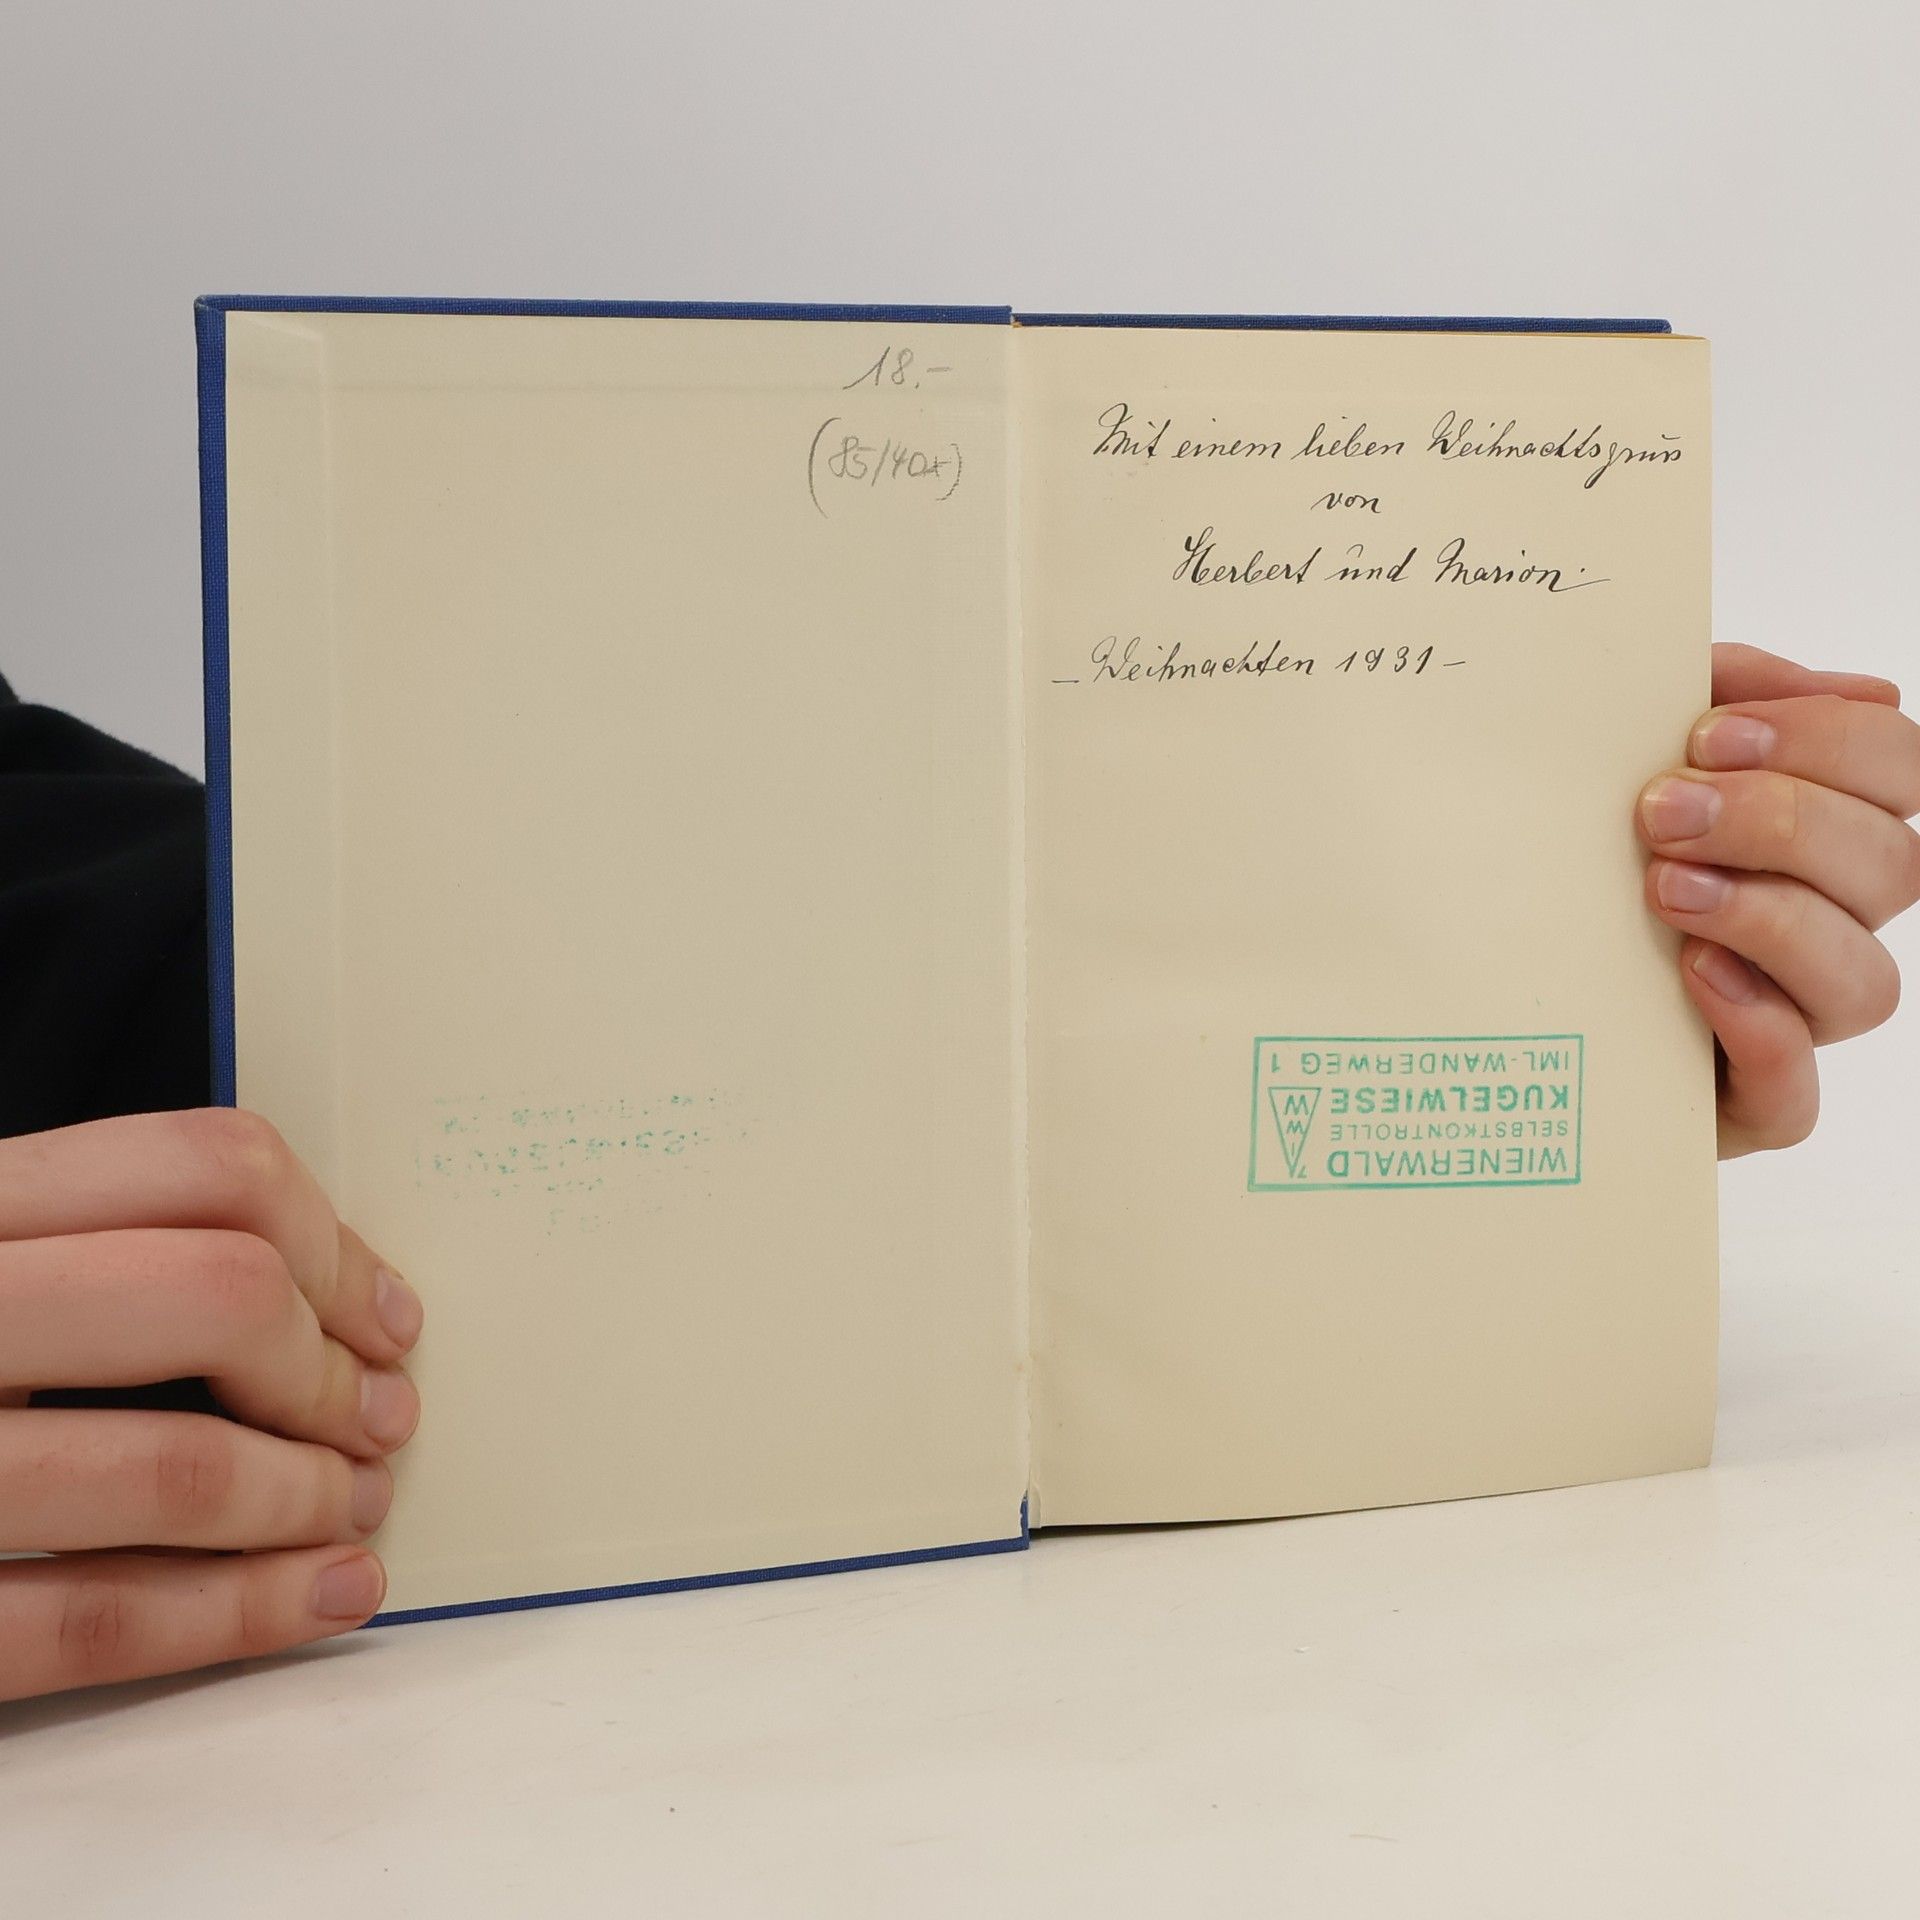 18.-
(85/40)
Mit einem lieben Weihnachtsgruss
von
Herbert und Marion.
– Weihnachten 1931 –
WIENERWALD
SELBSTKONTROLLE
KUGELWIESE
IML-WANDERWEG 1
WWW